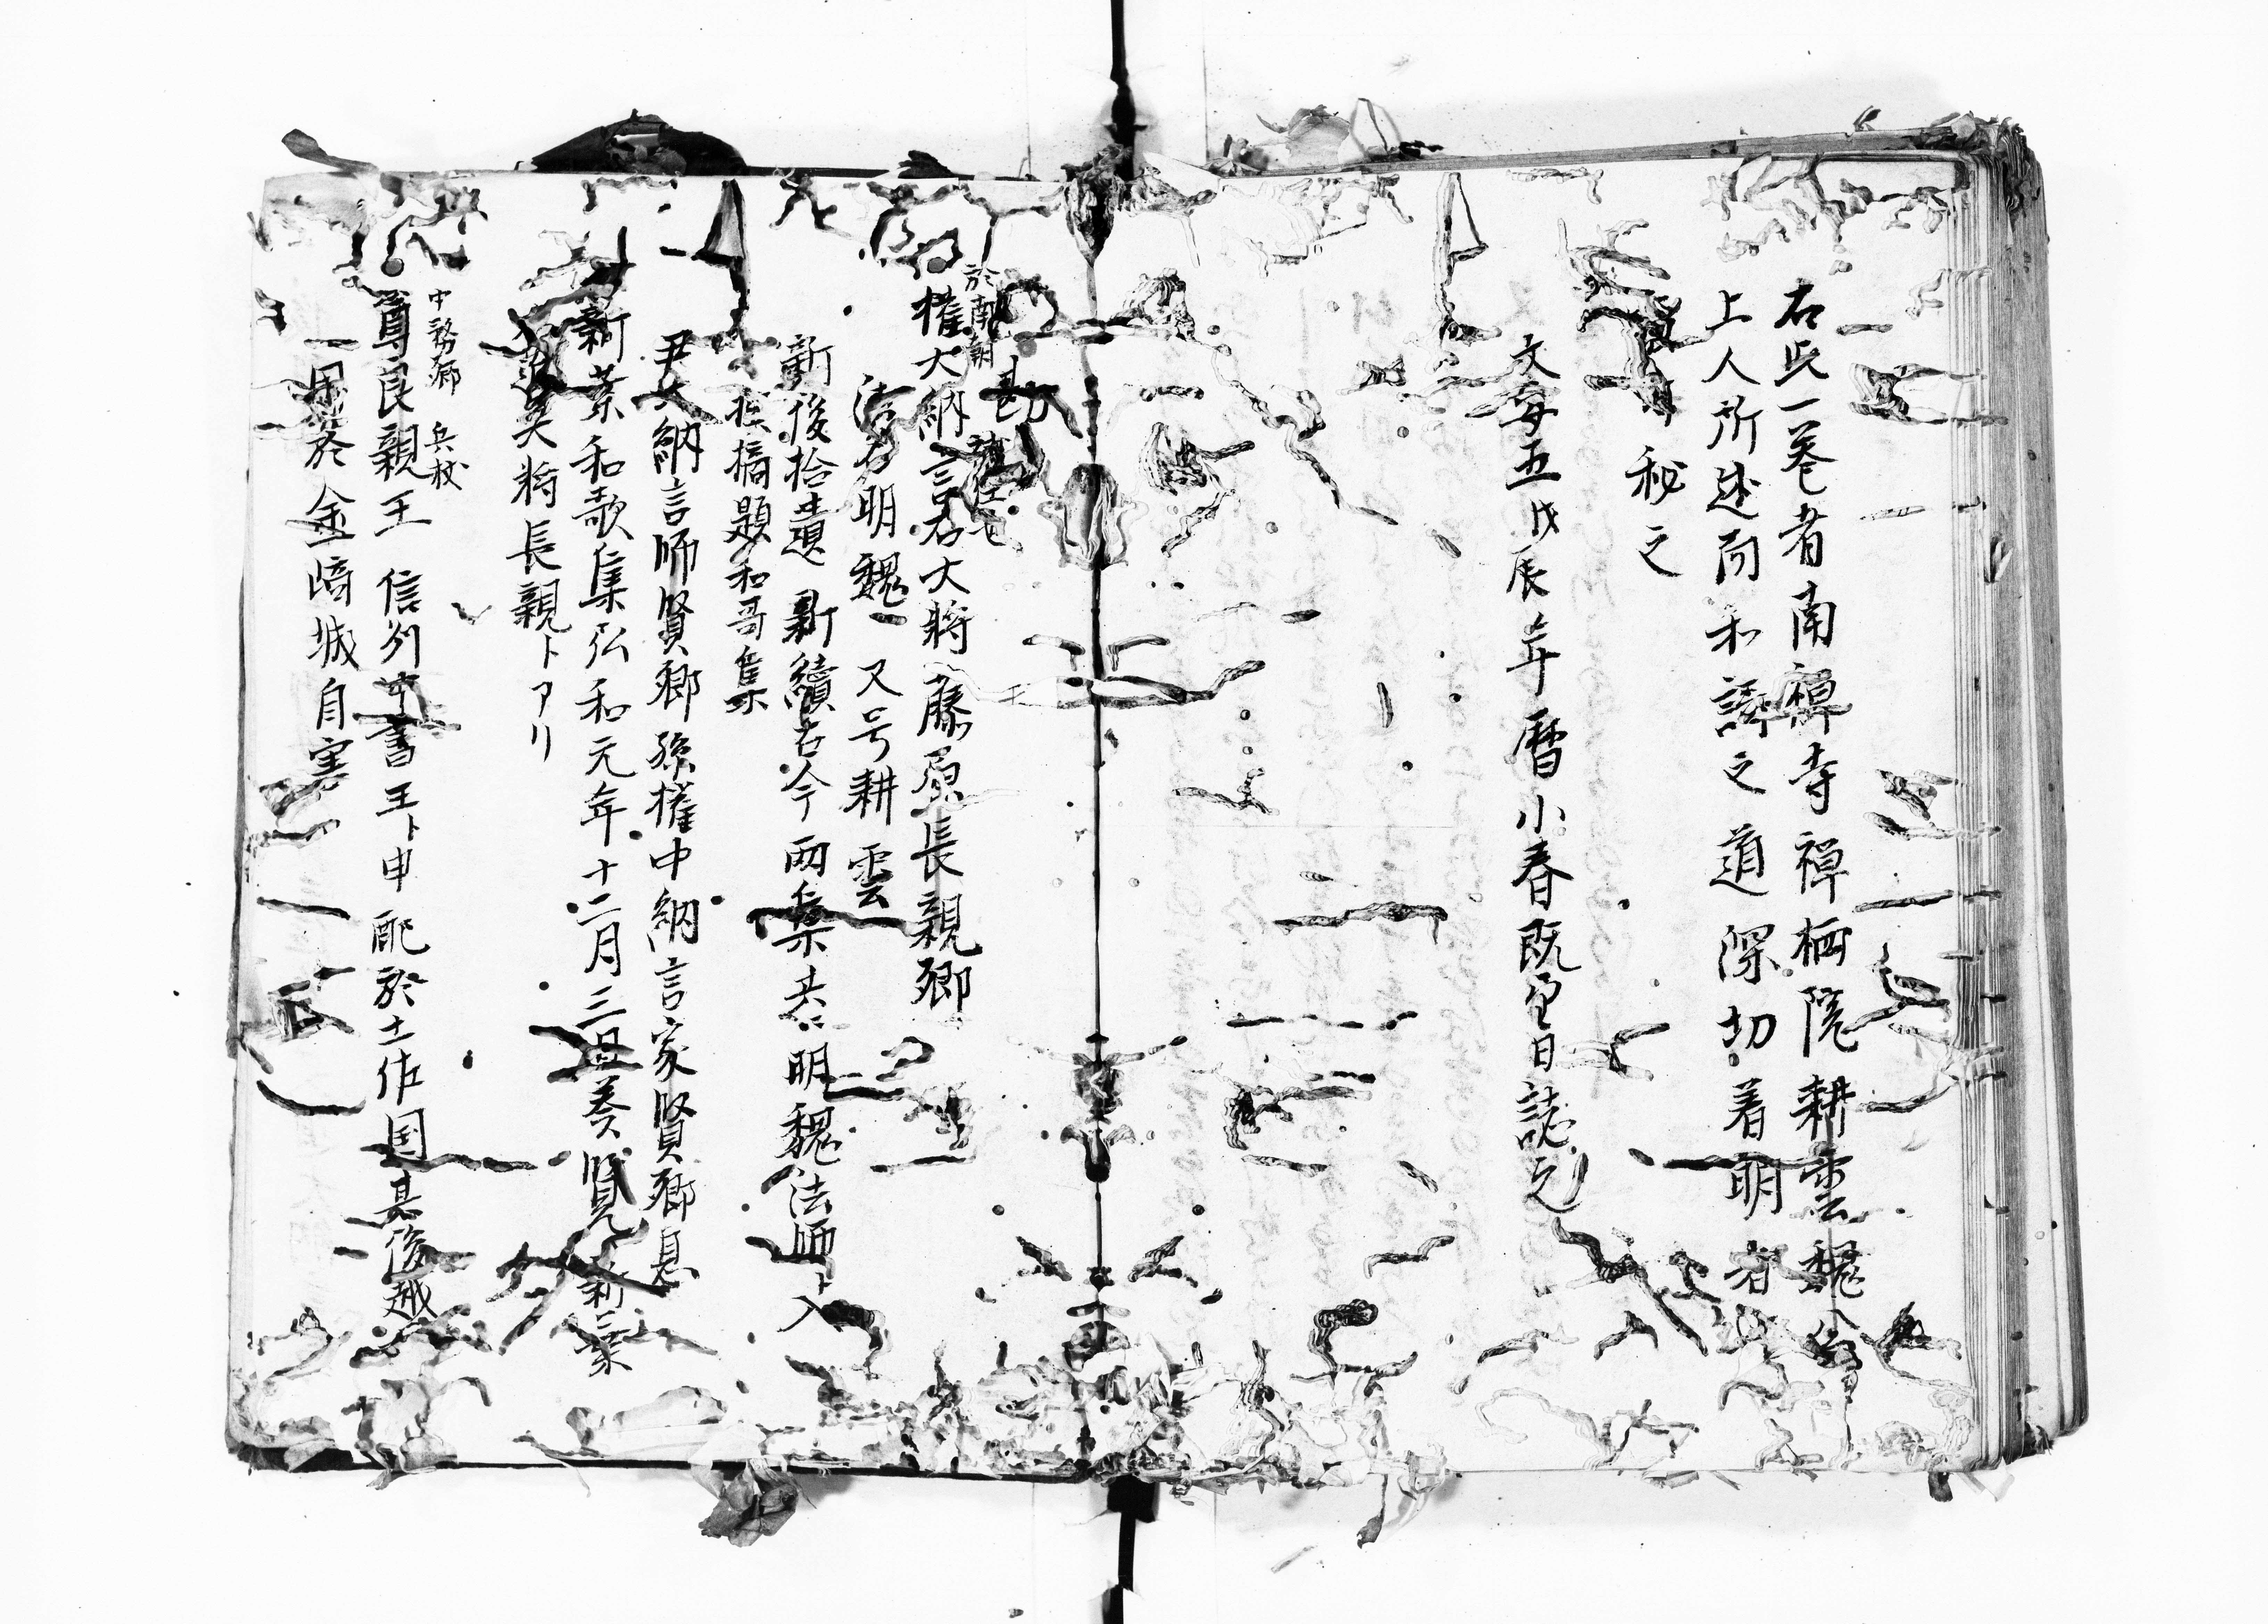 右此一巻者南禅寺禅栖院耕雲魏公
上人所述而和謌之道深切着明者
秘之
文安五戊辰年暦小春既望日誌之
勘
於南朝
権大納言右大将藤原長親卿
法名明魏 又号耕雲
新後拾遺 新續古今両集共ニ明魏法師ト入
摘題和哥集
尹大納言師賢卿孫権中納言家賢卿息
新葉和歌集弘和元年十二月三日奏覧新葉
右大将長親トアリ
中務卿 兵校
尊良親王 信列中書王ト申配於土佐国其後越
於金崎城自害